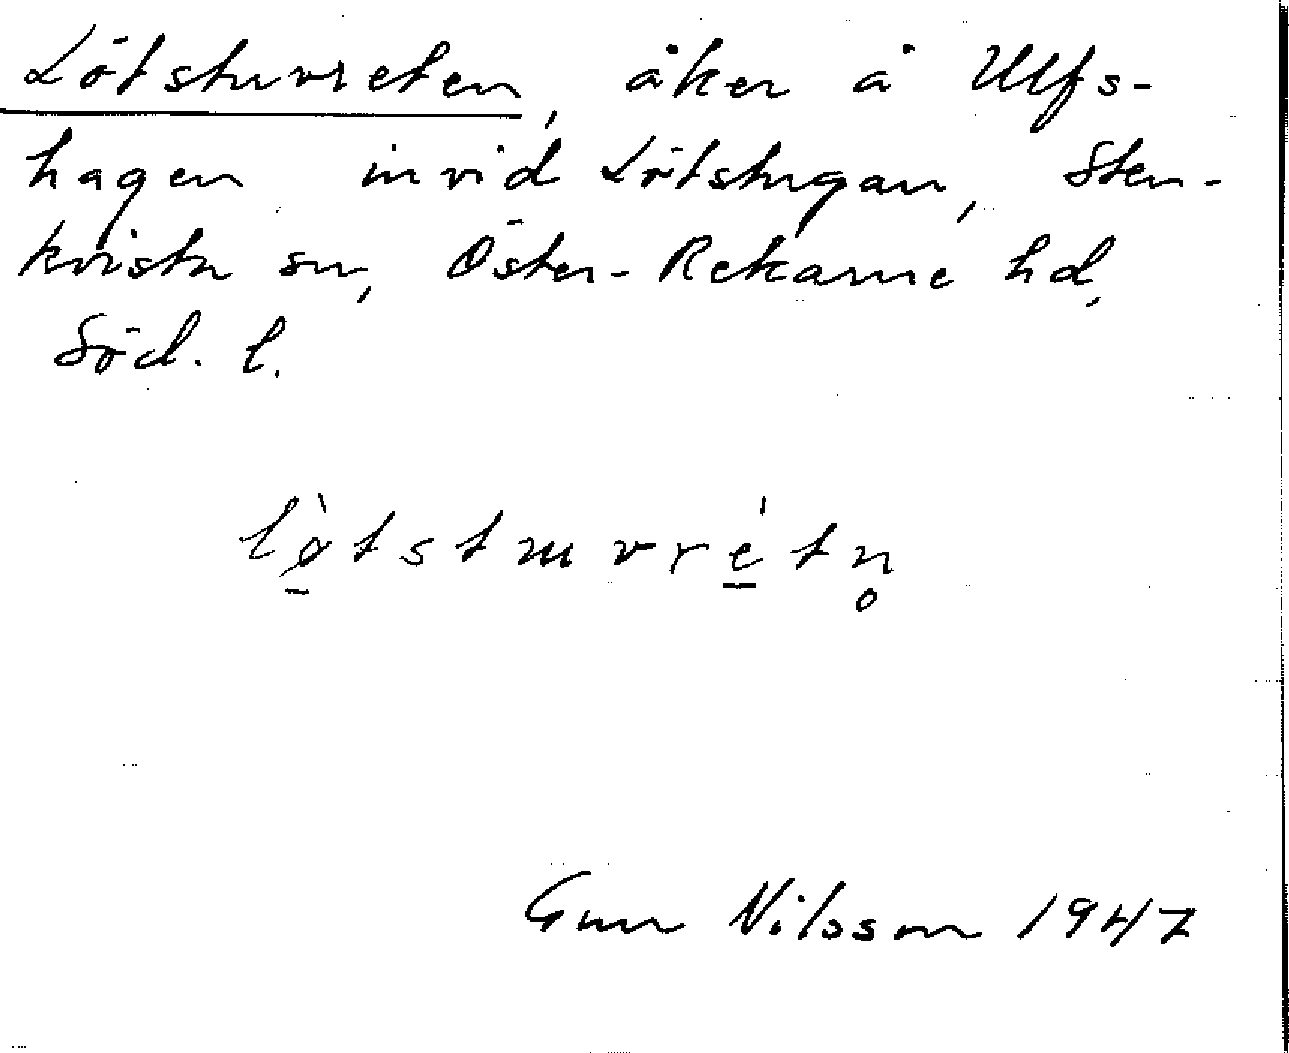 Lötstuvreten, åker å Ulfs-
hagen invid Lötstugan, Sten-
kvista sn, Öster-Rekarne hd,
Söd. l.
lø̀tstuvrétn̥
Gun Nilsson 1947